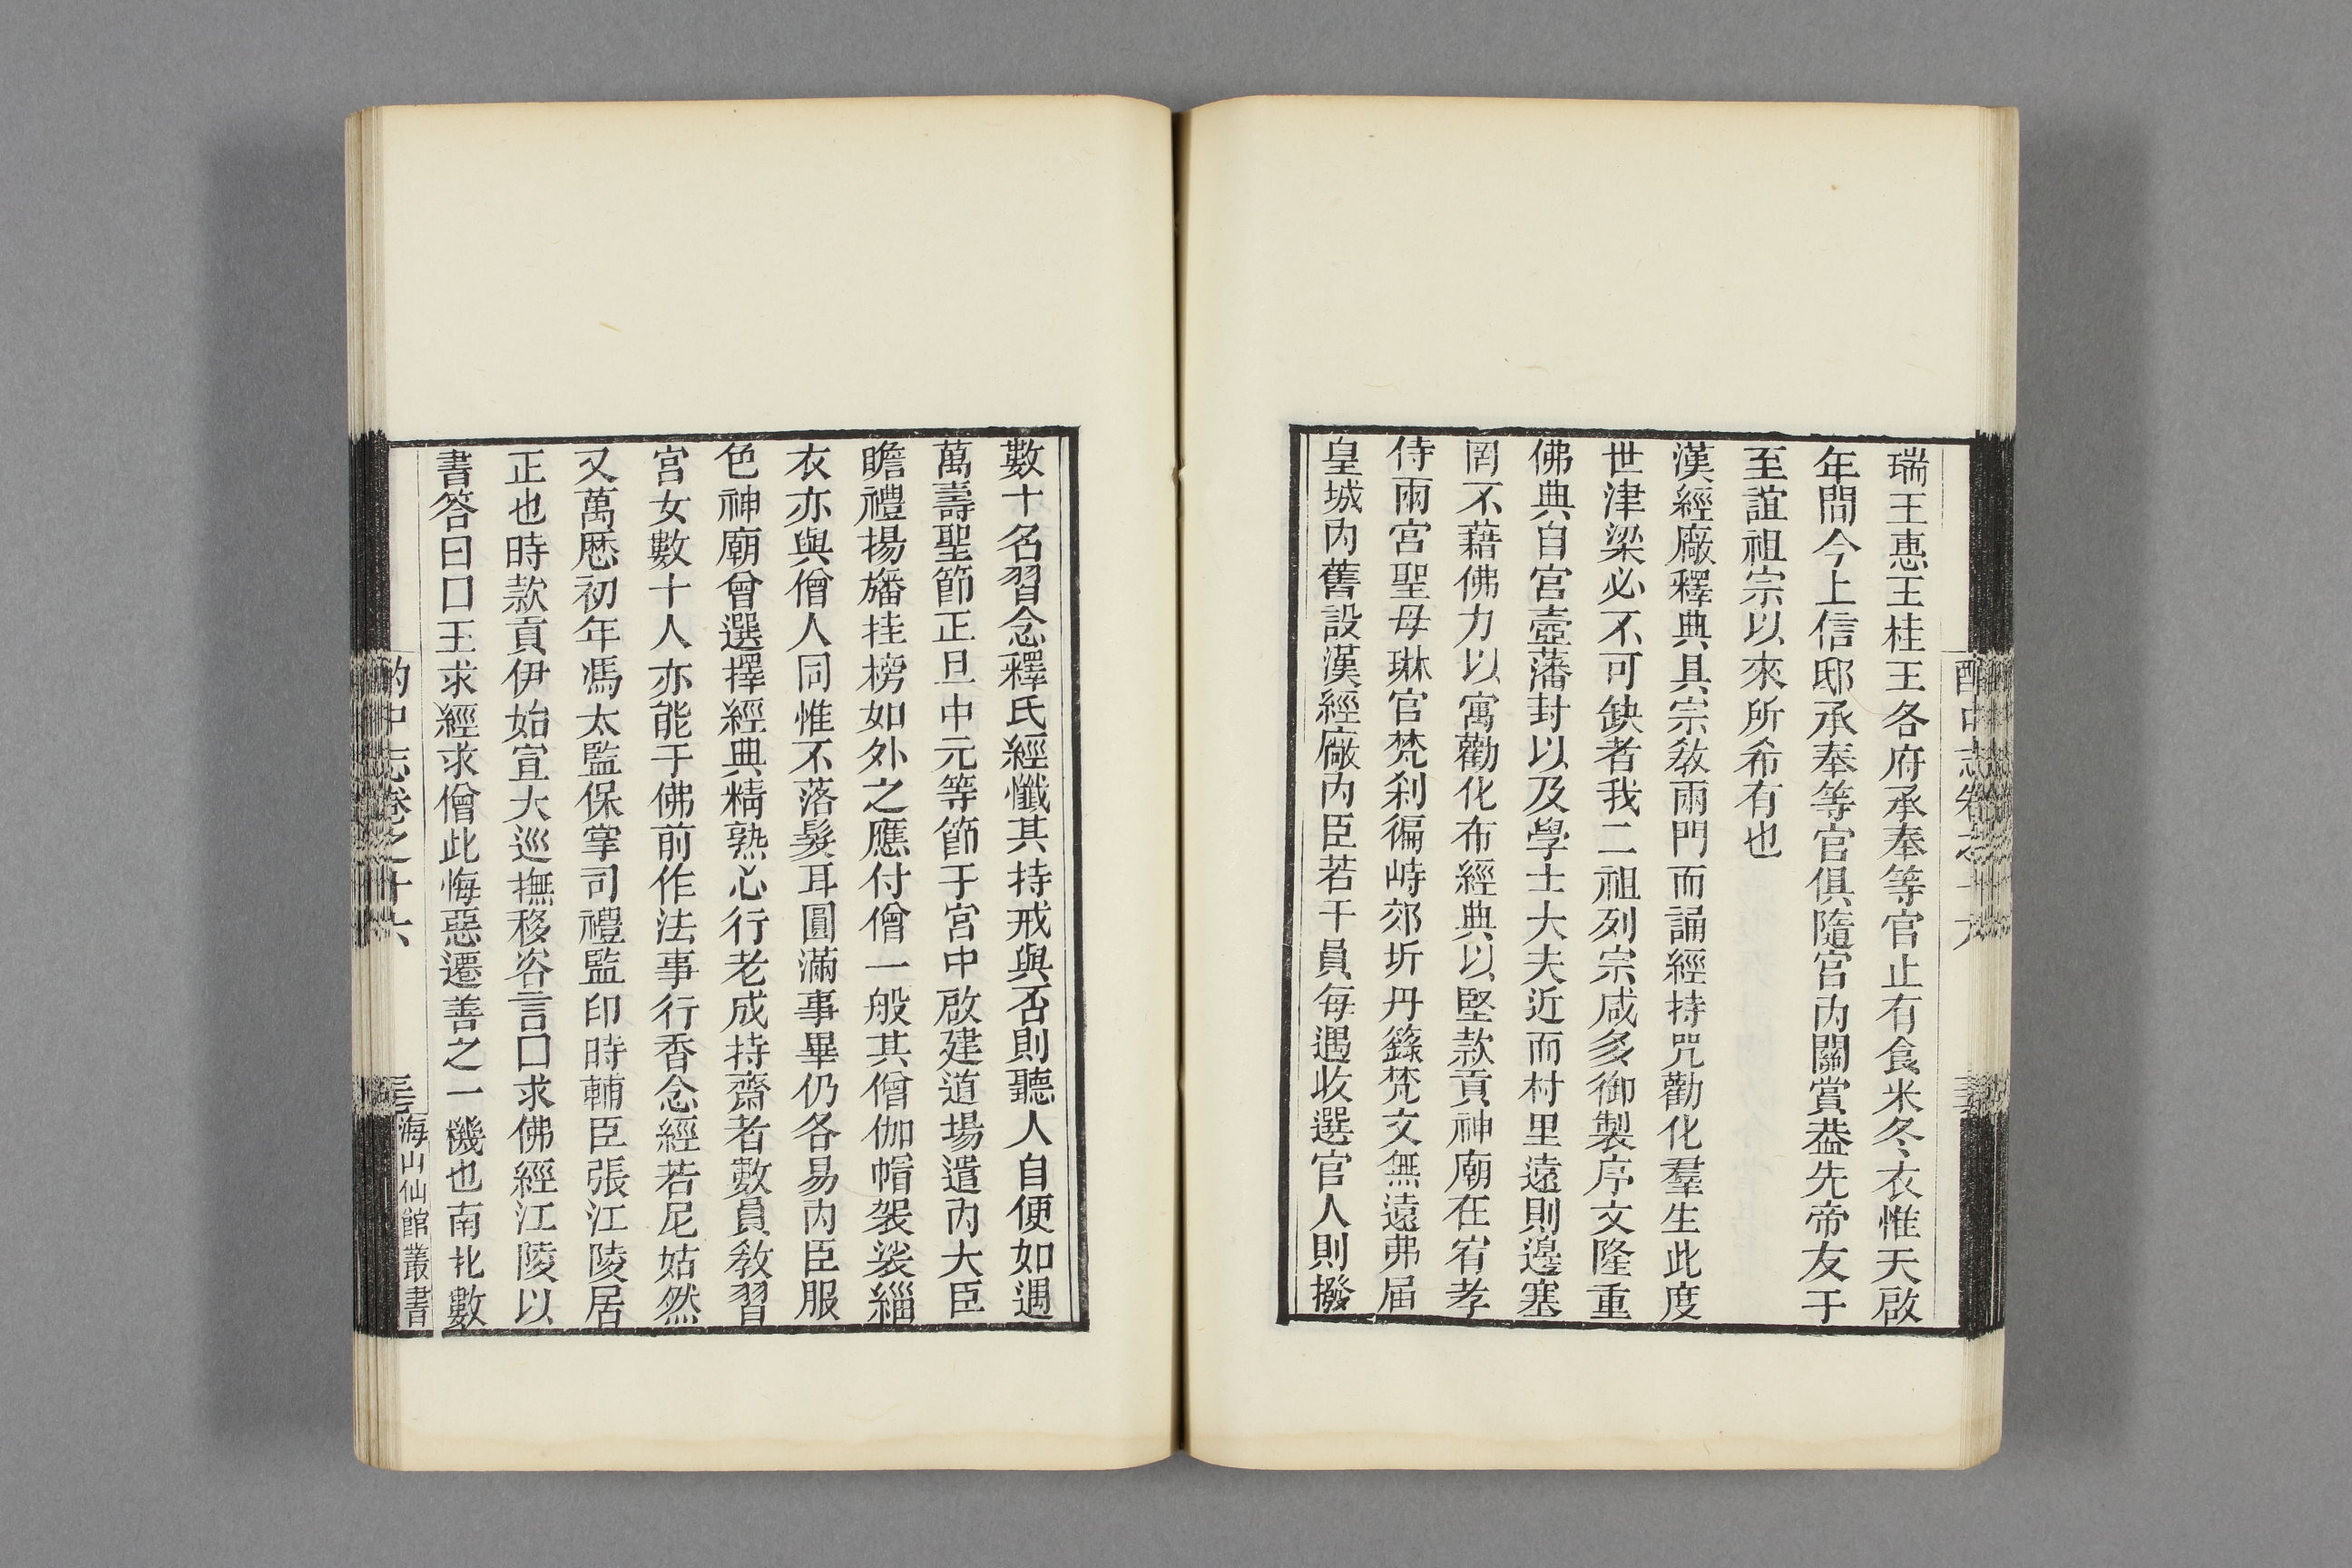 瑞王惠王桂王各府承奉等官止有食米冬衣惟天啟
年間今上信邸承奉等官俱隨宮內關賞葢先帝友于
至誼祖宗以來所希有也
漢經廠釋典具宗敎兩門而誦經持咒勸化羣生此度
世津梁必不可缺者我二祖列宗咸多御製序文隆重
佛典自宮壼藩封以及學士大夫近而村里遠則邊塞
罔不藉佛力以寓勸化布經典以堅款貢神廟在宥孝
侍兩宮聖母琳宮梵刹徧峙郊圻丹籙梵文無遠弗届
皇城內舊設漢經廠內臣若干員每遇收選官人則撥
數十名習念釋氏經懺其持戒與否則聽人自便如遇
萬壽聖節正旦中元等節于宮中啟建道場遣內大臣
瞻禮揚旛挂榜如外之應付僧一般其僧伽帽袈裟緇
衣亦與僧人同惟不落髮耳圓滿事畢仍各易內臣服
色神廟曾選擇經典精熟心行老成持齋者數員敎習
宮女數十人亦能于佛前作法事行香念經若尼姑然
又萬厯初年馮太監保掌司禮監印時輔臣張江陵居
正也時款貢伊始宣大巡撫移咨言囗求佛經江陵以
書答曰囗王求經求僧此悔惡遷善之一機也南北數
酌中志卷之十六
海山仙館叢書